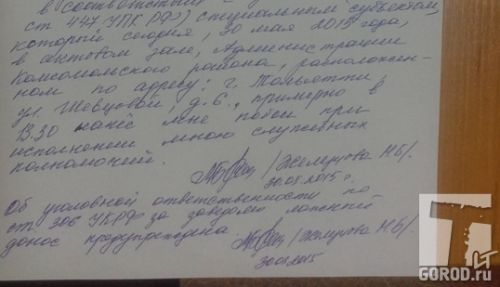 в соответствии с
ст 447 УПК РФ) специальным субъектом,
который сегодня, 30 мая 2015 года,
в актовом зале, Администрации
Комсомольского района, расположен-
ном по адресу: г. Тольятти,
ул. Шевцовой, д. 6., примерно в
13.30 нанёс мне побои при
исполнении мною служебных
полномочий.
/Жемерцова Н.Б/.
30.05.2015 г.
Об уголовной ответственности по
ст 306 УК РФ за заведомо ложный
донос предупреждена
/Жемерцова Н.Б/.
30.05.2015
GOROD.ru